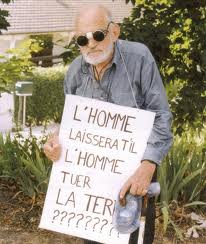 L'HOMME
LAISSERATIL
L'HOMME
TUER
LA TER
????????